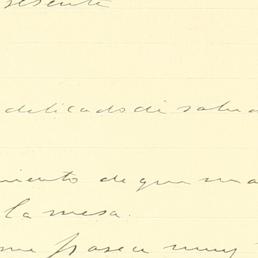 delicado de salud
miento de que ma
la mesa.
me parece muy